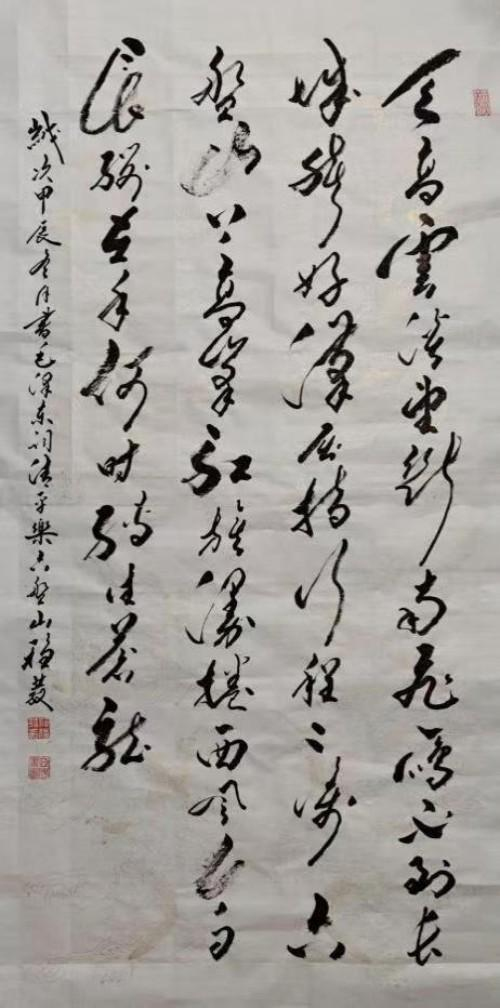 天高雲淡望斷南飛雁不到长
城非好漢屈指行程二萬六
盤山上高峯紅旗漫捲西風今日
長纓在手何时縛住蒼龍
歲次甲辰冬月書毛澤東詞清平樂六盤山